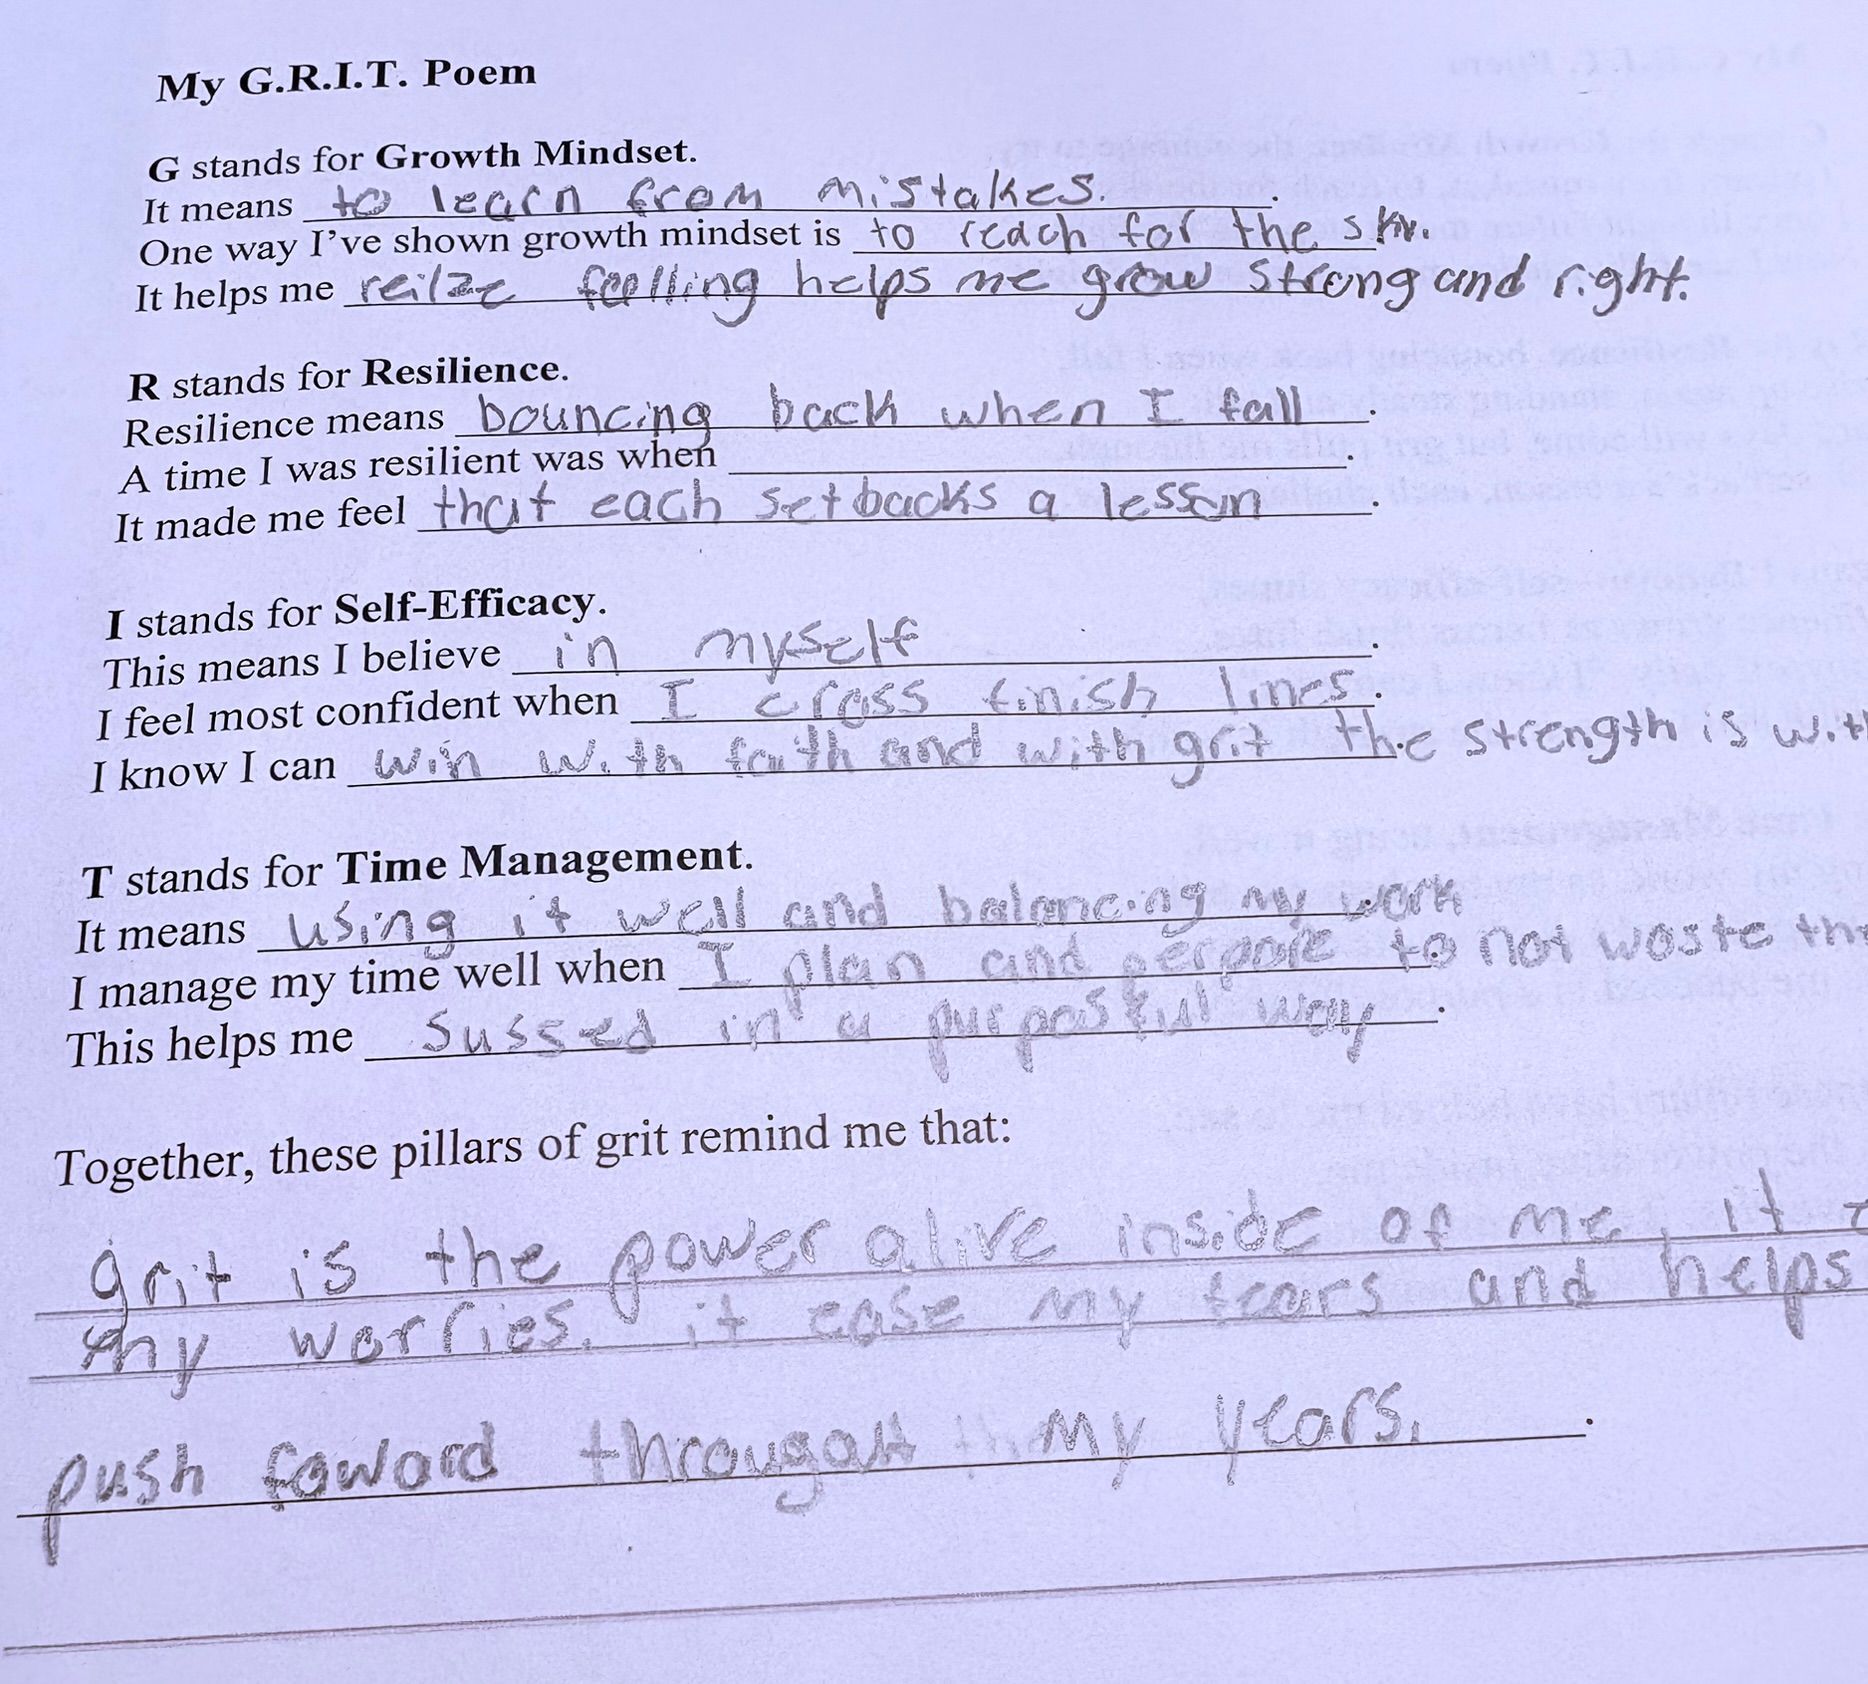 My G.R.I.T. Poem
G stands for Growth Mindset.
It means to learn from mistakes.
One way I've shown growth mindset is to reach for the sky.
It helps me reilze faelling helps me grow strong and right.
R stands for Resilience.
Resilience means bouncing back when I fall.
A time I was resilient was when ____.
It made me feel that each setbacks a lesson.
I stands for Self-Efficacy.
This means I believe in myself.
I feel most confident when I cross finish lines.
I know I can win with faith and with grit the strength is with
T stands for Time Management.
It means using it well and balancing my work
I manage my time well when I plan and perpare to not waste the
This helps me sussed in a purposful way.
Together, these pillars of grit remind me that:
grit is the power alive inside of me, it
my worries. it ease my tears and helps
push foward througout my years.